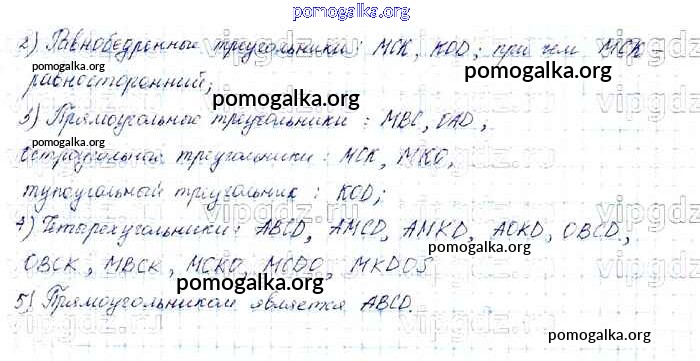 pomogalka.org
2) Равнобедренные треугольники: МСК, KOD; при чем МСК -
pomogalka.org
равносторонний;
pomogalka.org
3) Прямоугольные треугольники: МВС, OAD,
pomogalka.org
остроугольные треугольники: МСК, МКО,
тупоугольный треугольник: KOD;
4) Четырехугольники: ABCD, AMCD, AMKD, AOKD, OBCD,
pomogalka.org
OBCK, MBCK, MCKO, MCDO, MKDOS
pomogalka.org
5) Прямоугольником является ABCD.
pomogalka.org
vipgdz.ru